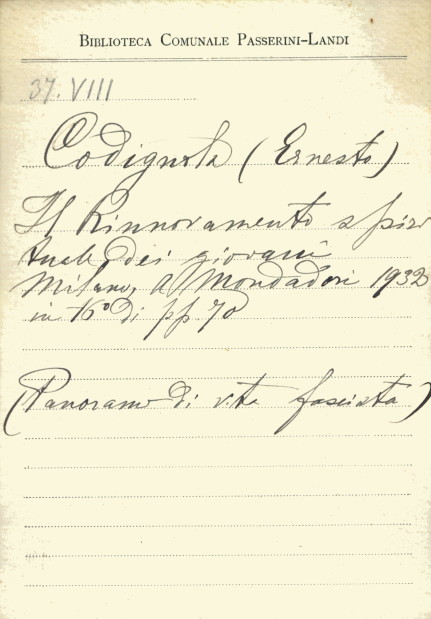 BIBLIOTECA COMUNALE PASSERINI-LANDI
37. VIII
Codignola (Ernesto)
Il Rinnovamento spiri
tuale dei giovani
Milano, A Mondadori 1932
in 16° di pp. 70
(Panorami di vita fascista)